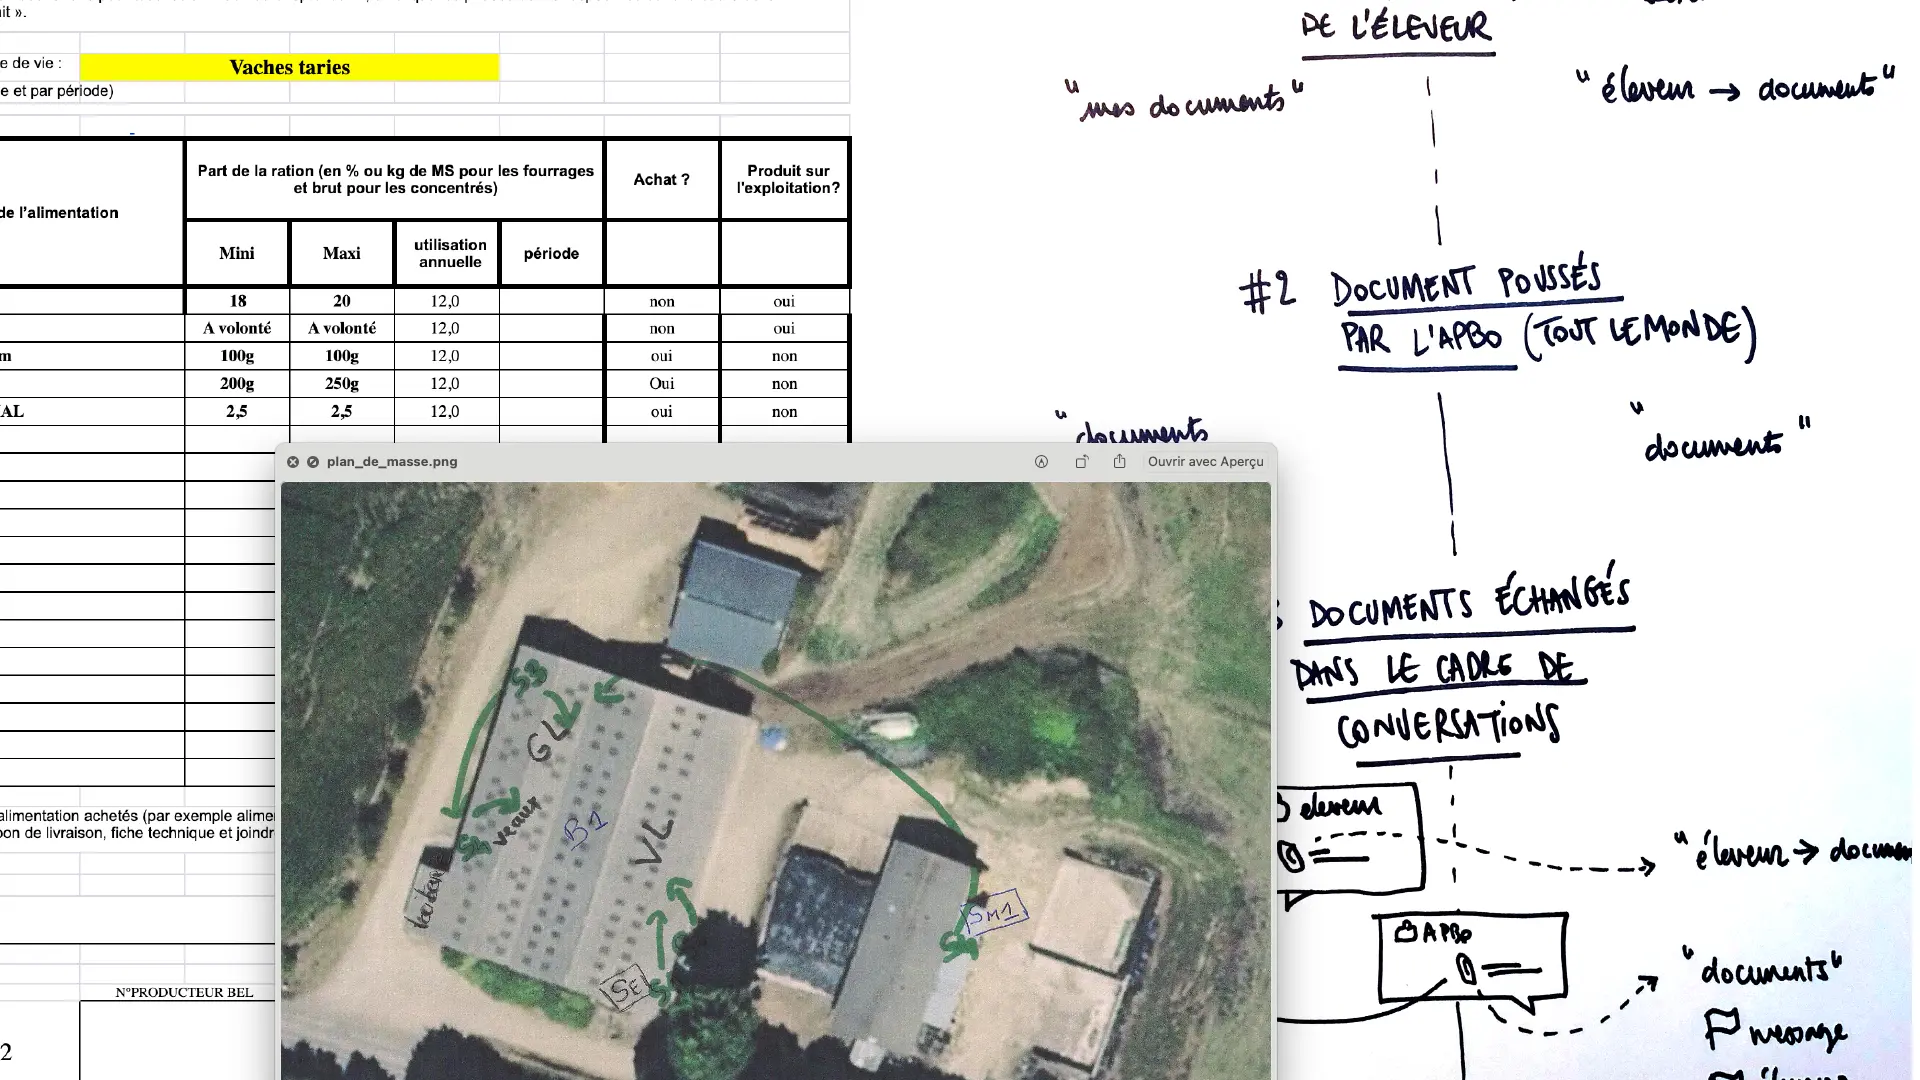 it ».
e de vie :
Vaches taries
e et par période)
de l'alimentation
Part de la ration (en % ou kg de MS pour les fourrages
et brut pour les concentrés)
Achat ?
Produit sur
l'exploitation?
Mini
Maxi
utilisation
annuelle
période
18 20 12,0 non oui
A volonté A volonté 12,0 non oui
m 100g 100g 12,0 oui non
200g 250g 12,0 Oui non
AL 2,5 2,5 12,0 oui non
alimentation achetés (par exemple alime
bon de livraison, fiche technique et joindr
N°PRODUCTEUR BEL
2
plan_de_masse.png
Ouvrir avec Aperçu
S3
GL
veaux
B1
VL
SE
SM1
DE L'ÉLEVEUR
"mes documents"
"éleveur → document"
#2 DOCUMENT POUSSÉS
PAR L'APBO (TOUT LE MONDE)
"documents
"documents"
DOCUMENTS ÉCHANGÉS
DANS LE CADRE DE
CONVERSATIONS
eleveur
"éleveur → documen
APBO
"documents"
message